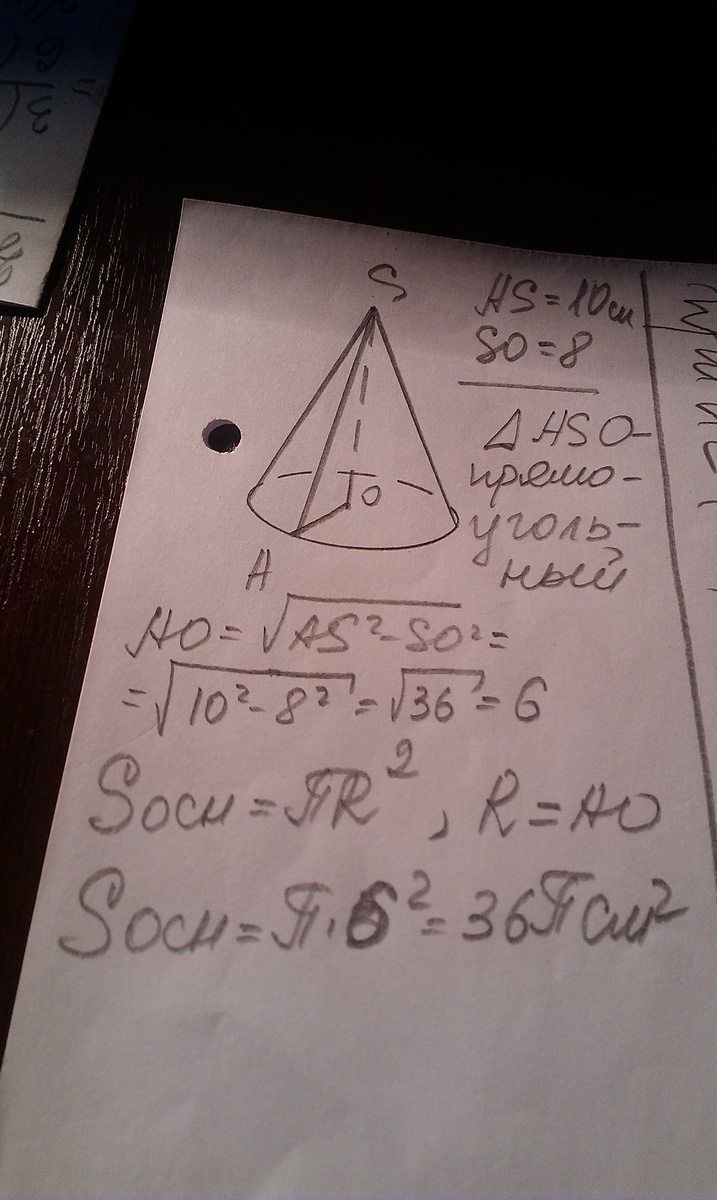 S
AS=10см
SO=8
O
A
△ASO-
прямо-
уголь-
ный
AO=√AS²-SO²=
=√10²-8²=√36=6
Sосн=πR², R=AO
Sосн=π·6²=36πсм²